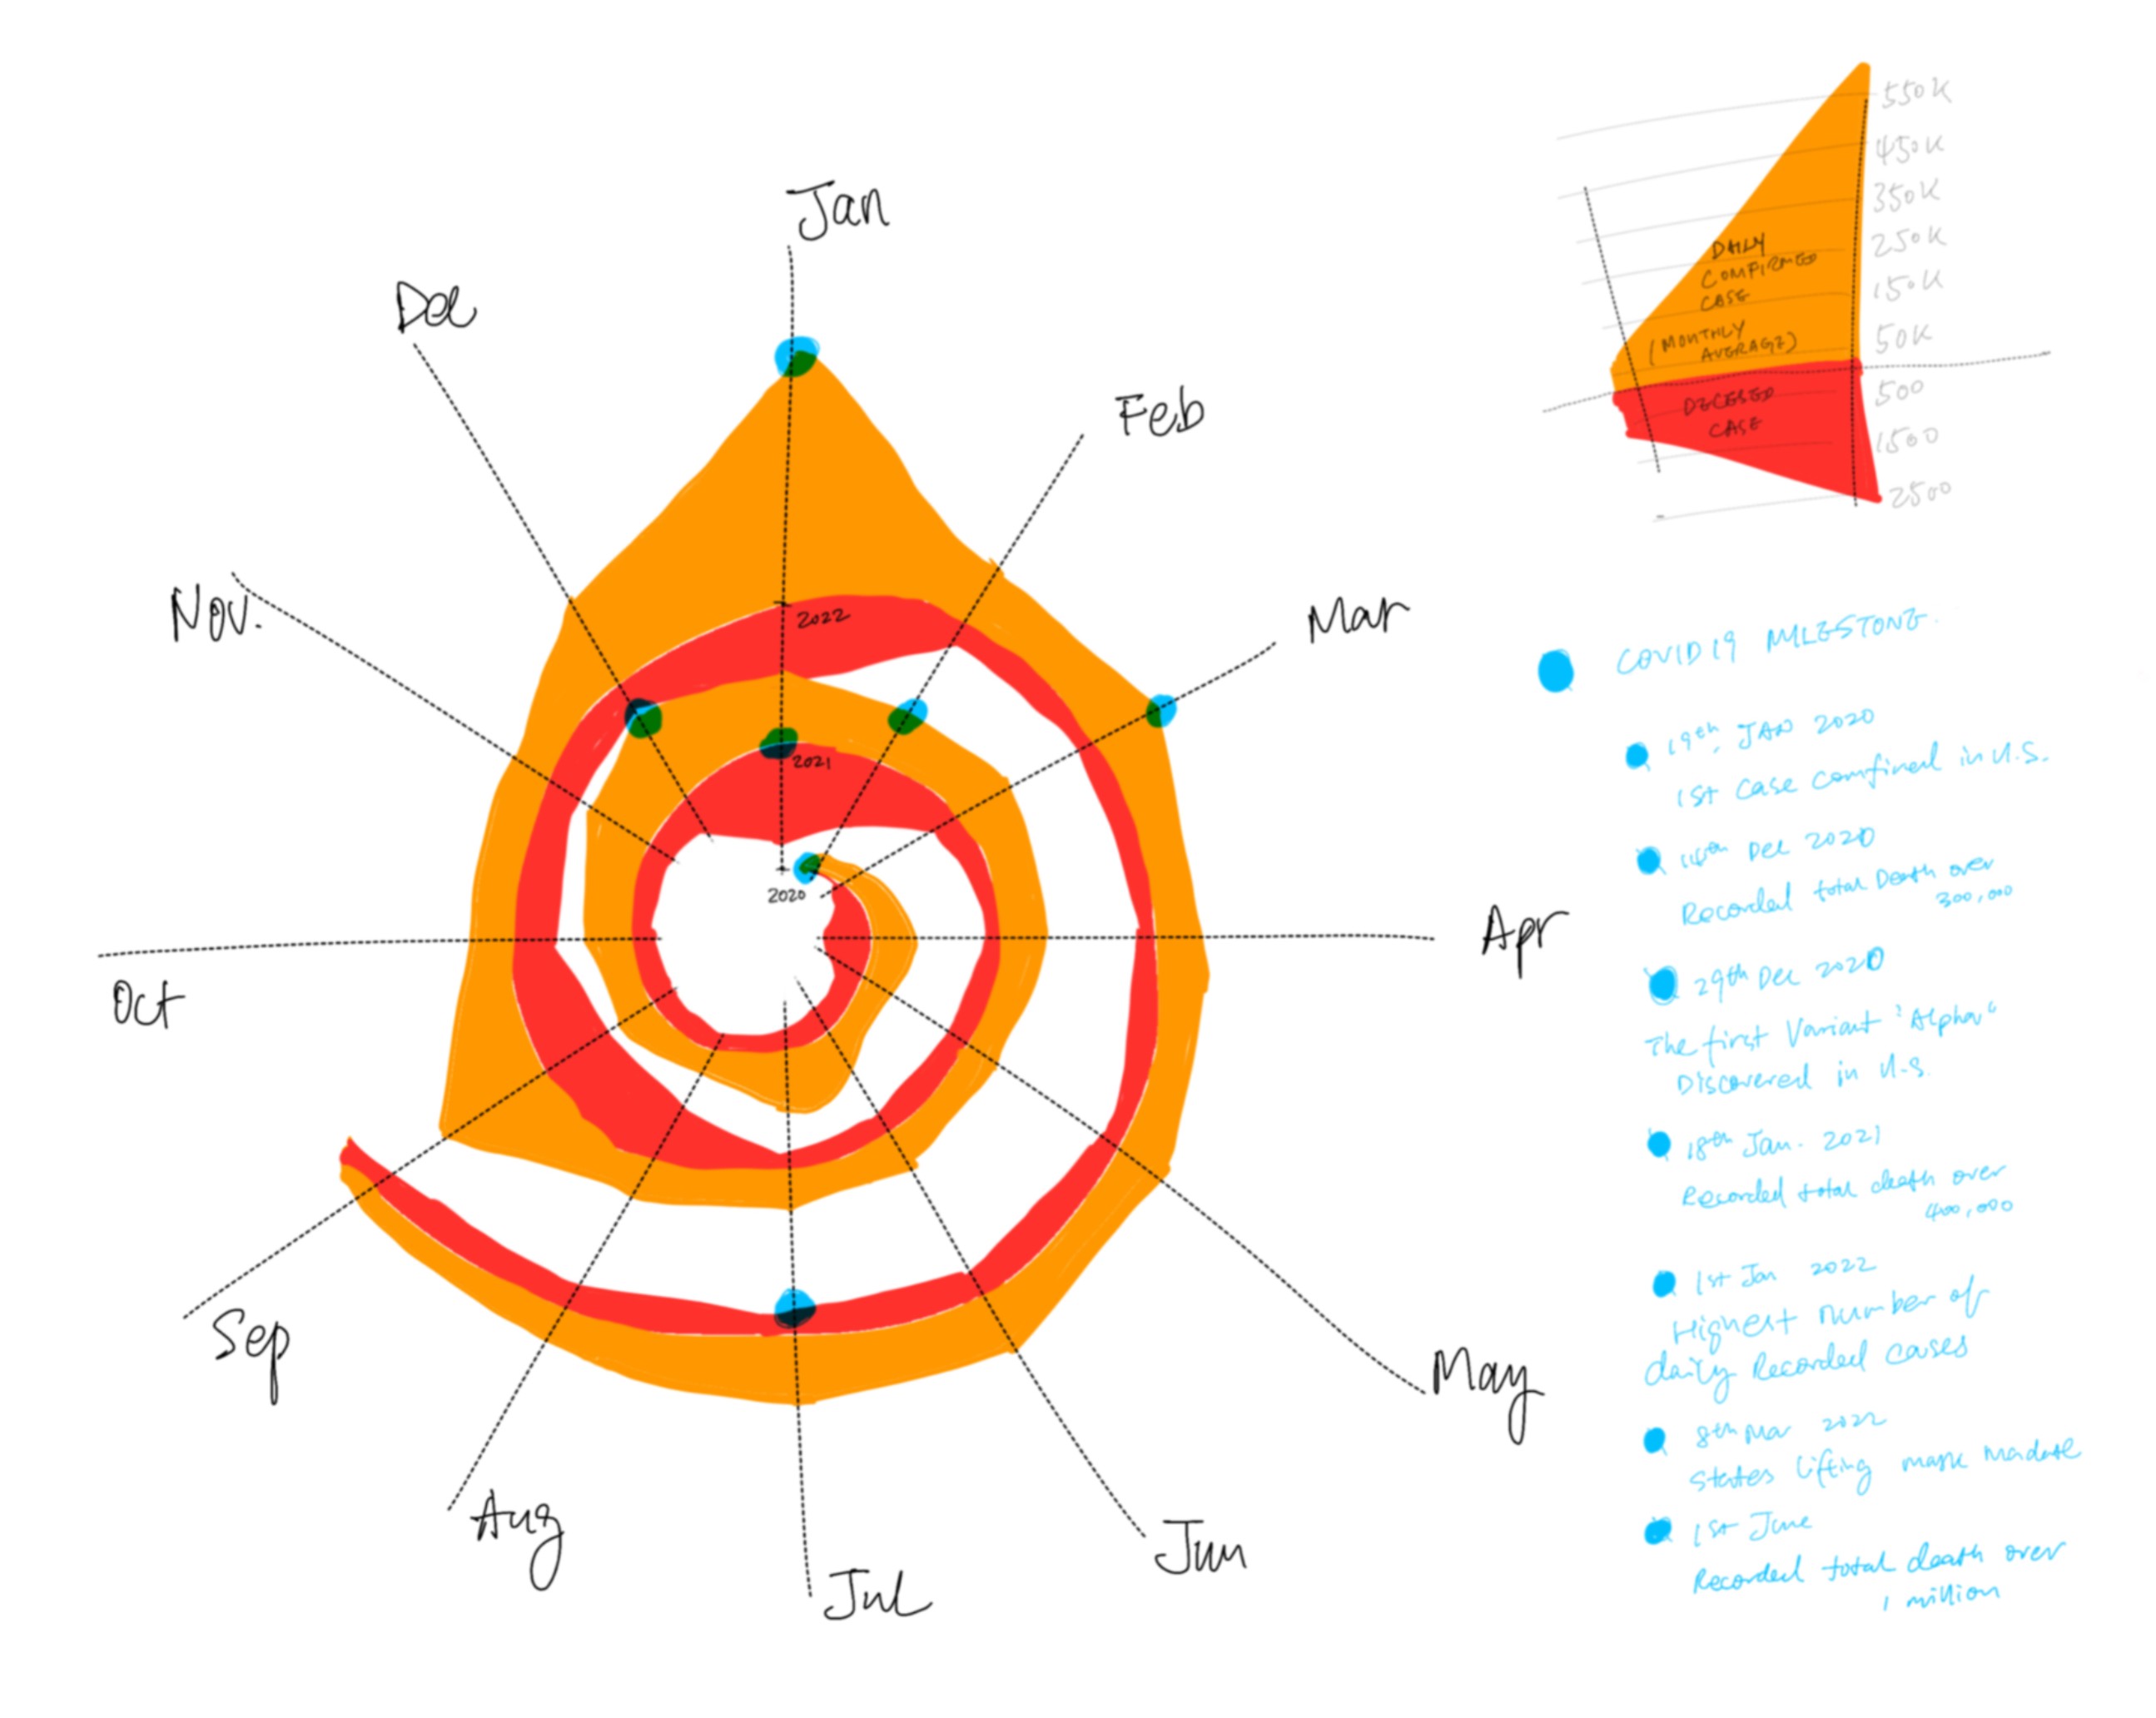 Jan
Feb
Mar
Apr
May
Jun
Jul
Aug
Sep
Oct
Nov.
Dec
2022
2021
2020
550K
450K
350K
250K
150K
50K
500
1500
2500
DAILY
COMFIRMED
CASE
(MONTHLY
AVERAGE)
DECESED
CASE
COVID 19 MILESTONE.
19th, JAN 2020
1st case comfined in U.S.
14th Dec 2020
Recorded total Death over
300,000
29th Dec 2020
The first Variant "Alpha"
Discovered in U.S.
18th Jan. 2021
Recorded total death over
400,000
1st Jan 2022
Highest number of
daily Recorded cases
8th Mar 2022
States lifting mask madate
1st June
Recorded total death over
1 million